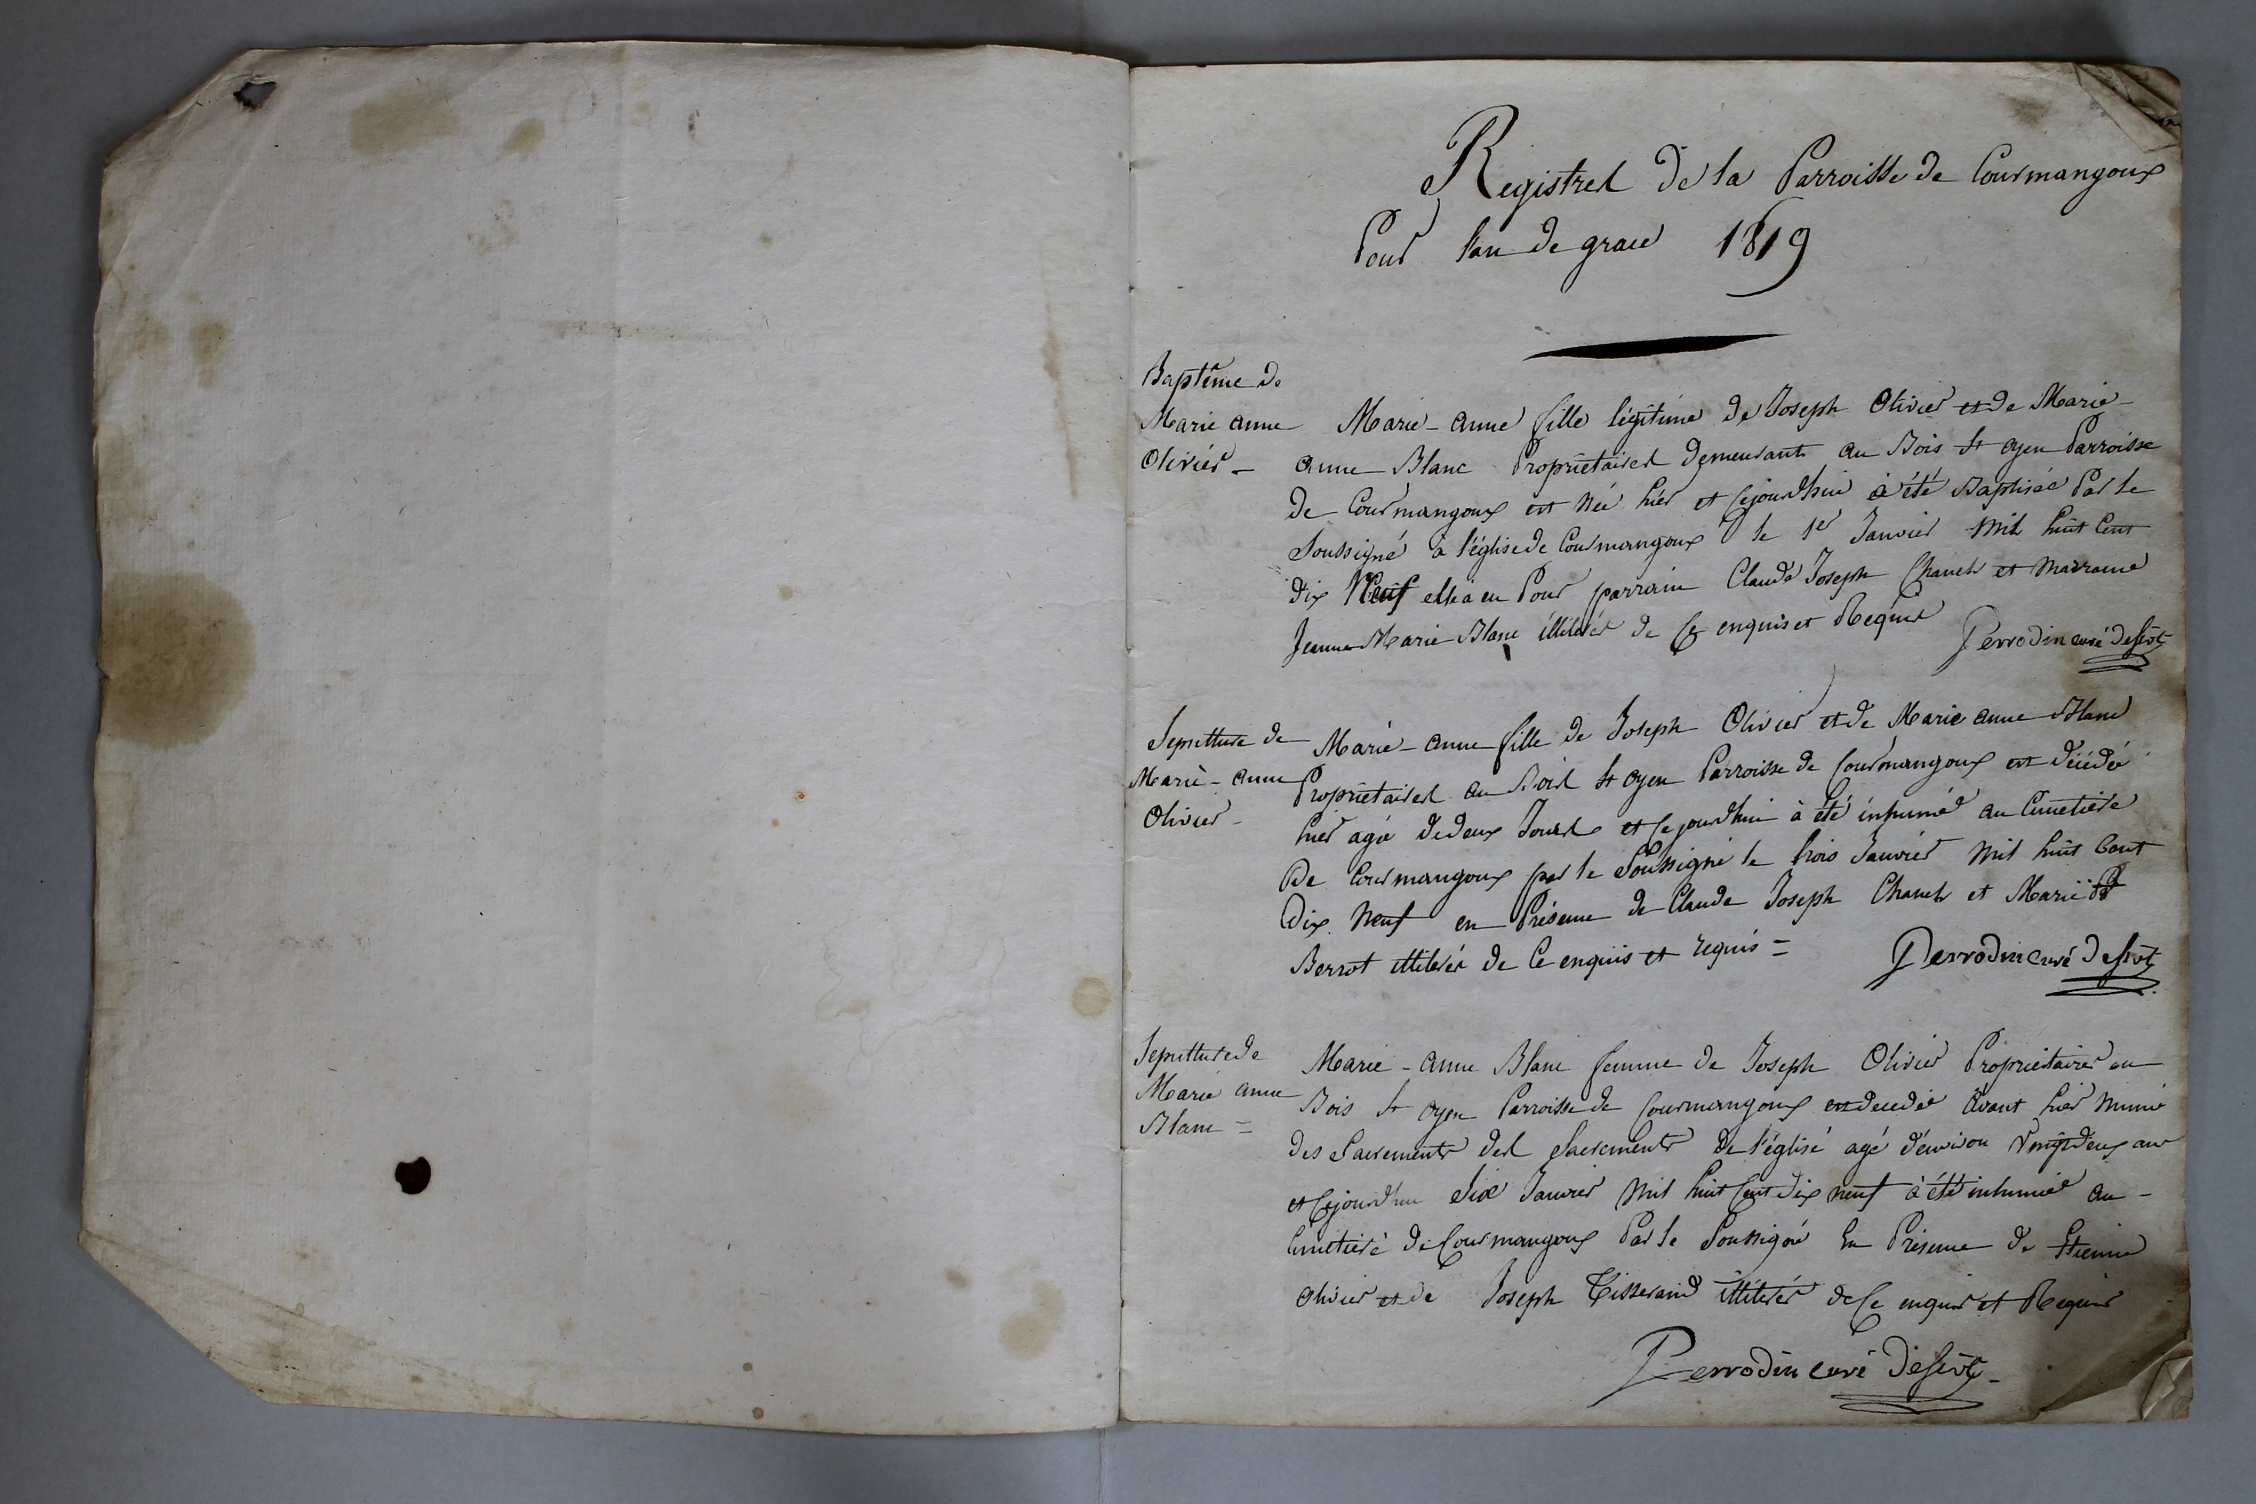 Registres de la Parroisse de Courmangoux
Pour l'an de grace 1819
Baptême de
Marie anne
Olivier -
Marie - anne fille légitime de Joseph Olivier et de Marie -
anne Blanc Propriétaires demeurants au Bois St oyen Parroisse
de Courmangoux est née hier et cejourdhui à été Baptisée Par le
Soussigné à l'église de Courmangoux le 1er Janvier mil huit Cent
dix Neuf elle a eu Pour parrain Claude Joseph Chanel et marraine
Jeanne Marie Blanc illiterés de Ce enquis et Requis
Perrodin curé desservt
Sepulture de
Marie - anne
Olivier -
Marie - anne fille de Joseph Olivier et de Marie anne Blanc
Propriétaires au Bois St oyen Parroisse de Courmangoux est décédée
hier agée de deux Jours et cejourdhui à été inhumée au Cimetière
De Courmangoux par le Soussigné le trois Janvier mil huit Cent
Dix Neuf en Présence de Claude Joseph Chanel et Marie
Berrot illiterés de Ce enquis et requis =
Perrodin curé desservt
Sepulture de
Marie anne
Blanc =
Marie - anne Blanc femme de Joseph Olivier Propriétaires au
Bois St oyen Parroisse de Courmangoux est decedée avant hier munie
des Sacrements des Sacrements de l'église agé d'environ vingt deux ans
et Cejourdhui Six Janvier mil huit Cent dix neuf à été inhumée au -
Cimetière de Courmangoux Par le Soussigné En Présence de Etienne
Olivier et de Joseph Tisserand illiterés de Ce enquis et Requis
Perrodin curé desservt -